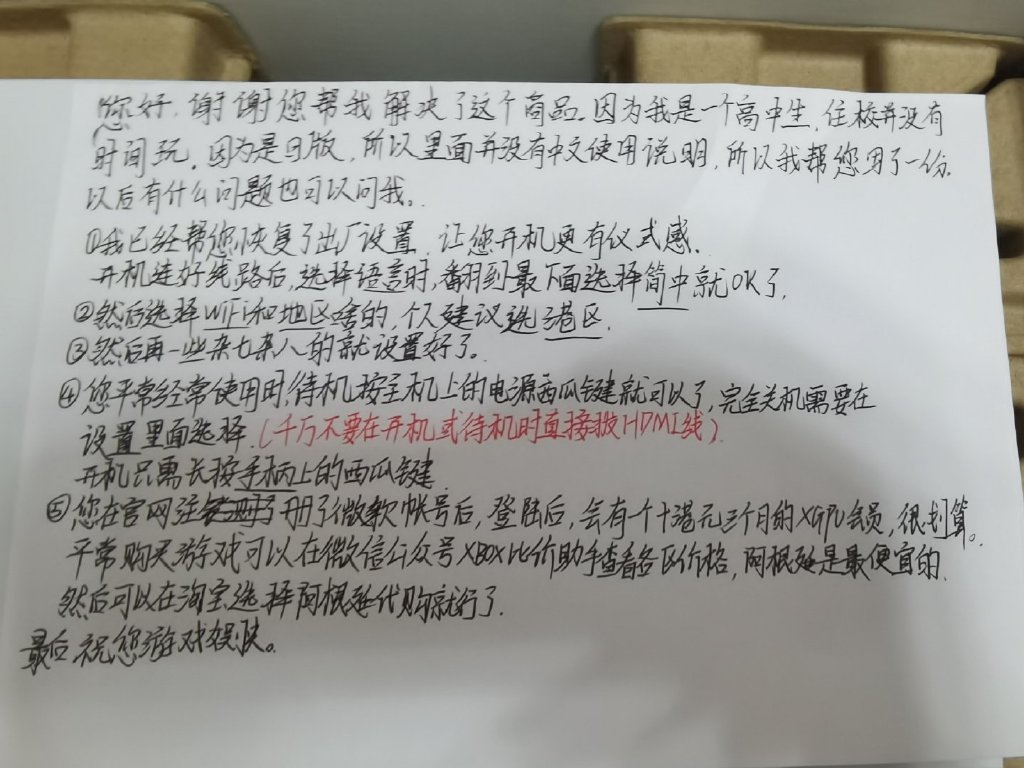 您好,谢谢您帮我解决了这个商品。因为我是一个高中生,住校并没有
时间玩。因为是日版,所以里面并没有中文使用说明,所以我帮您写了一份.
以后有什么问题也可以问我。
①我已经帮您恢复了出厂设置,让您开机更有仪式感.
开机连好线路后,选择语言时,翻到最下面选择简中就OK了,
②然后选择WiFi和地区啥的,个人建议选港区.
③然后再一些杂七杂八的就设置好了。
④您平常经常使用时,待机按主机上的电源西瓜键就可以了,完全关机需要在
设置里面选择.(千万不要在开机或待机时直接拔HDMI线).
开机只需长按手柄上的西瓜键.
⑤您在官网注册了微软帐号后,登陆后,会有一个十港元三个月的XGPU会员,很划算。
平常购买游戏可以在微信公众号XBOX比价助手查看各区价格,阿根廷是最便宜的.
然后可以在淘宝选择阿根廷代购就行了.
最后祝您游戏娱快。